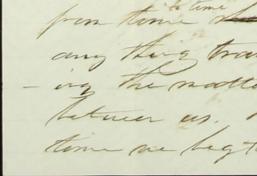 to time
from time
any thing tra
- ing the matte
between us.
time we beg t